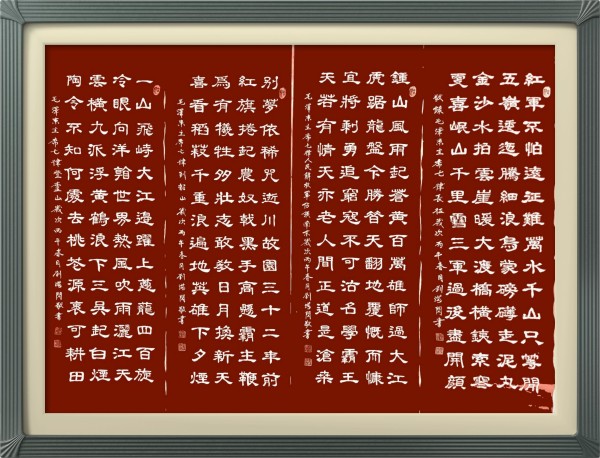 紅軍不怕遠征難萬水千山只等閒
五嶺逶迤騰細浪烏蒙磅礴走泥丸
金沙水拍雲崖暖大渡橋橫鐵索寒
更喜岷山千里雪三軍過後盡開顏
敬錄毛澤東主席七律長征歲次丙午春月劉瑞閣書
鍾山風雨起蒼黃百萬雄師過大江
虎踞龍盤今勝昔天翻地覆慨而慷
宜將剩勇追窮寇不可沽名學霸王
天若有情天亦老人間正道是滄桑
毛澤東主席七律人民解放軍佔領南京歲次丙午春月劉瑞閣敬書
別夢依稀咒逝川故園三十二年前
紅旗捲起農奴戟黑手高懸霸主鞭
為有犧牲多壯志敢教日月換新天
喜看稻菽千重浪遍地英雄下夕煙
毛澤東主席七律到韶山歲次丙午春月劉瑞閣敬書
一山飛峙大江邊躍上蔥蘢四百旋
冷眼向洋看世界熱風吹雨灑江天
雲橫九派浮黃鶴浪下三吳起白煙
陶令不知何處去桃花源裏可耕田
毛澤東主席七律登廬山歲次丙午春月劉瑞閣敬書